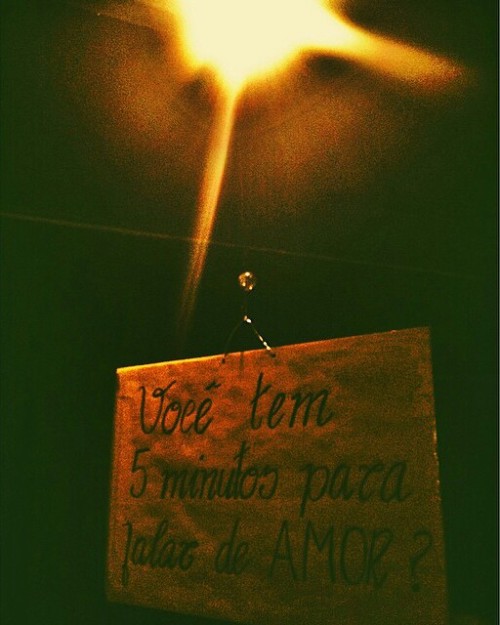 Você tem
5 minutos para
falar de AMOR?